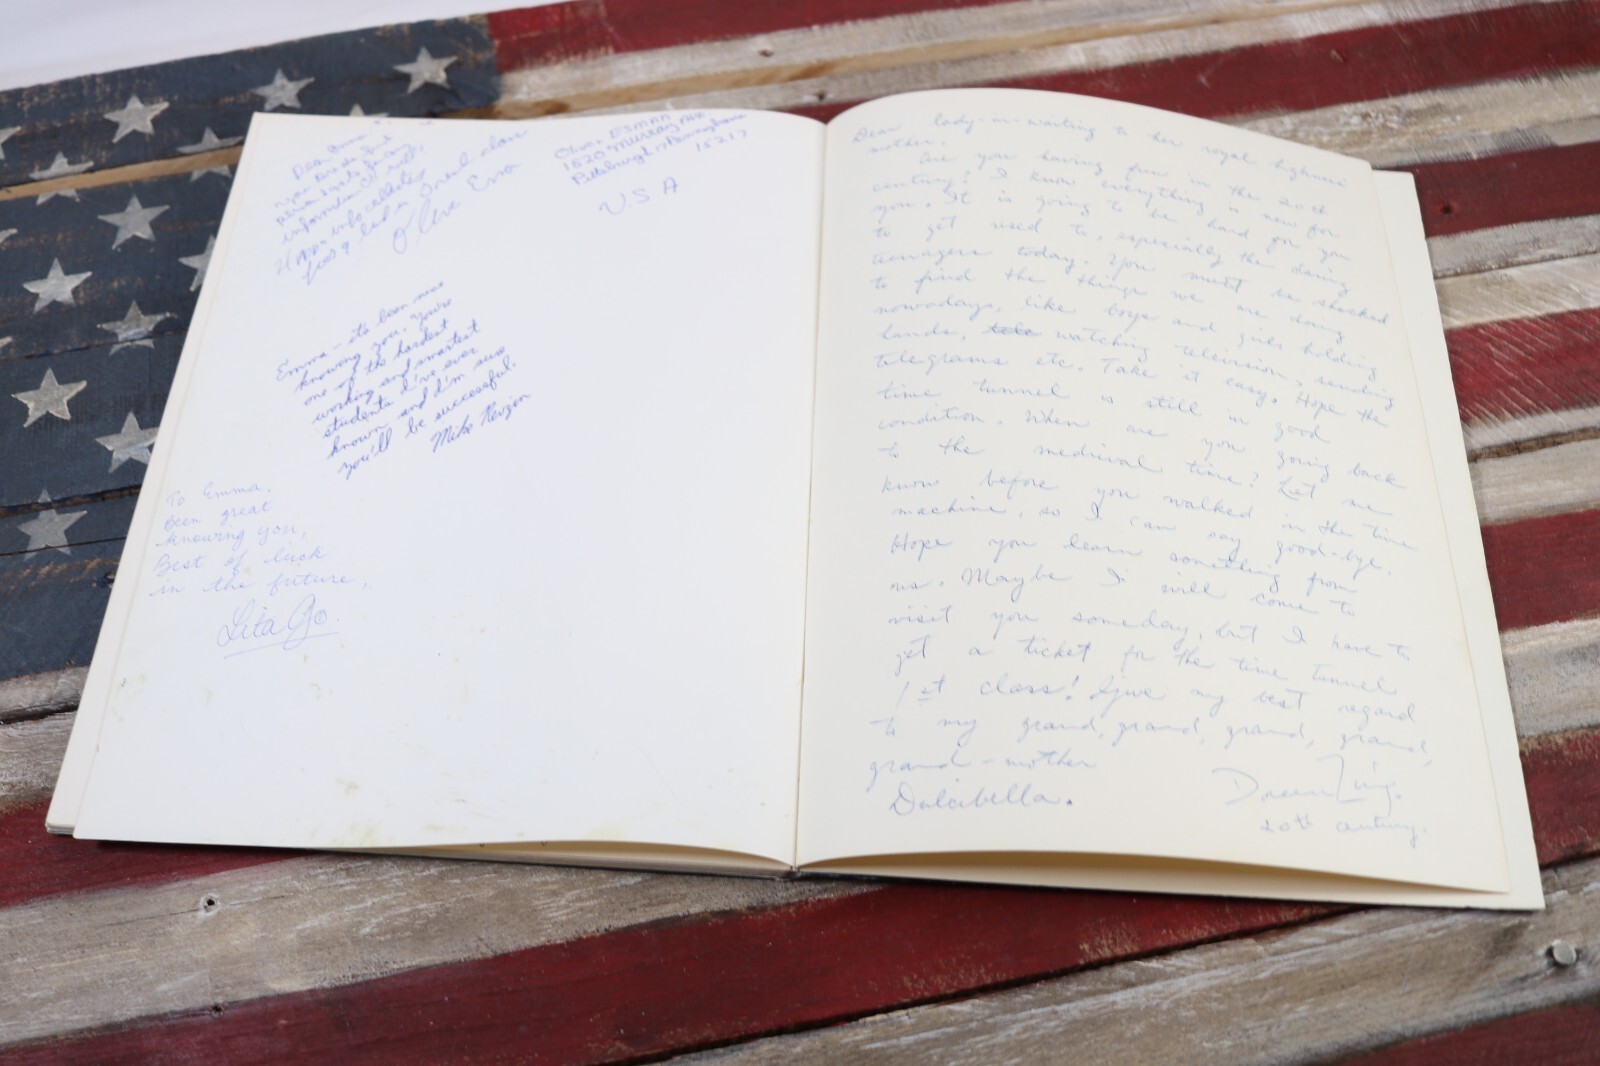 Dear Emma -
you
information
Happy
for a
Olive Esman
1520 Murray Ave
Pittsburgh Pennsylvania
15217
U.S A
Emma - its been nice
knowing you. You're
one of the hardest
working and smartest
students I've ever
known and I'm sure
you'll be successful.
Mike
To Emma,
Been great
knowing you,
Best of luck
in the future,
Lita Go.
Dear lady-in-waiting to her royal highness
mother,
Are you having fun in the 20th
century? I know everything is new for
you. It is going to be hard for you
to get used to, especially the daring
teenagers today. You must be shocked
to find the things we are doing
nowadays, like boys and girls holding
hands, watching television, sending
telegrams etc. Take it easy. Hope the
time tunnel is still in good
condition. When are you going back
to the medieval time? Let me
know before you walked in the time
machine, so I can say good-bye.
Hope you learn something from
us. Maybe I will come to
visit you someday, but I have to
get a ticket for the time tunnel
1st class! Give my best regard
to my grand, grand, grand, grand,
grand-mother
Dulcibella.
20th century.